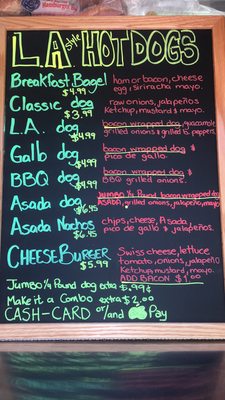 L.A style HOT DOGS
Breakfast Bagel ham or bacon, cheese
$4.99 egg, siriracha mayo.
Classic dog raw onions, jalapeños
$3.99 Ketchup, mustard & mayo.
L.A. dog bacon wrapped dog, guacamole
$4.99 grilled onions & grilled b. peppers.
Galb dog bacon wrapped dog &
$4.99 pico de gallo.
BBQ dog bacon wrapped dog &
$4.99 BBQ grilled onions.
Asada dog JUMBO 1/4 Pound bacon wrapped dog
$6.45 ASADA, grilled onions, jalapeño, mayo
Asada Nachos chips, cheese, Asada,
$6.45 pico de gallo & jalapeños.
CHEESE BURGER Swiss cheese, lettuce
$5.99 tomato, onions, jalapeño
Ketchup, mustard, mayo.
ADD BACON $1.00
Jumbo 1/4 Pound dog extra $.99¢
Make it a Combo extra $2.00
CASH-CARD or/and Pay